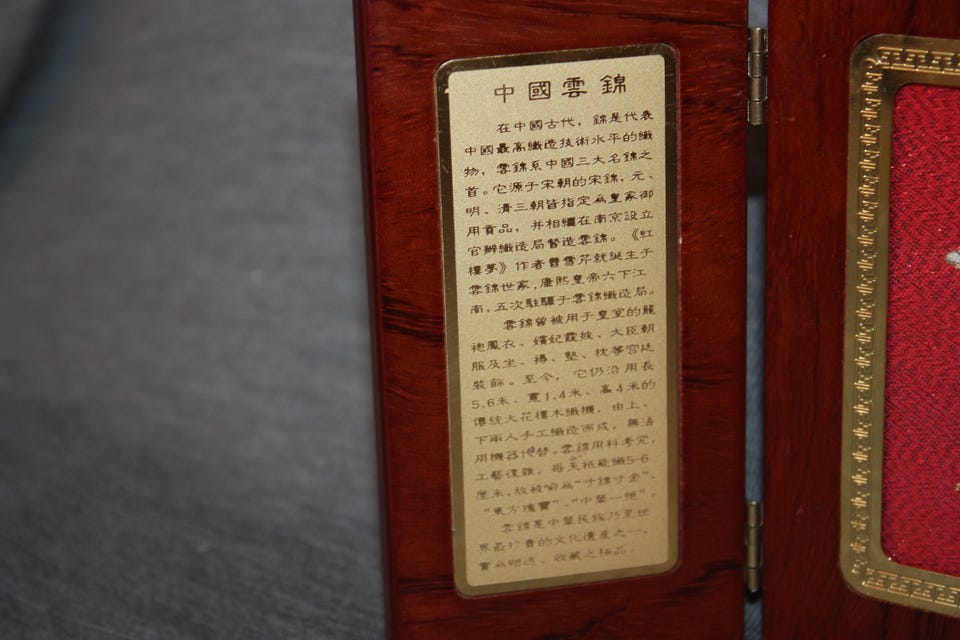 中國雲錦
在中國古代，錦是代表
中國最高織造技術水平的織
物，雲錦系中國三大名錦之
首。它源于宋朝的宋錦，元、
明、清三朝皆指定為皇家御
用貢品，并相繼在南京設立
官辦織造局督造雲錦。《紅
樓夢》作者曹雪芹就誕生于
雲錦世家，康熙皇帝六下江
南，五次駐驆于雲錦織造局。
雲錦曾被用于皇室的龍
袍鳳衣、嬪妃霞披、大臣朝
服及坐、褥、墊、枕等宮廷
裝飾。至今，它仍沿用長
5.6米、寬1.4米、高4米的
傳統大花樓木織機，由上、
下兩人手工織造而成，無法
用機器代替。雲錦用料考究，
工藝復雜，每天祇能織5-6
厘米，故被喻為“寸錦寸金”、
“東方瑰寶”、“中華一絕”。
雲錦是中華民族乃至世
界最珍貴的文化遺產之一，
實為贈送、收藏之極品。